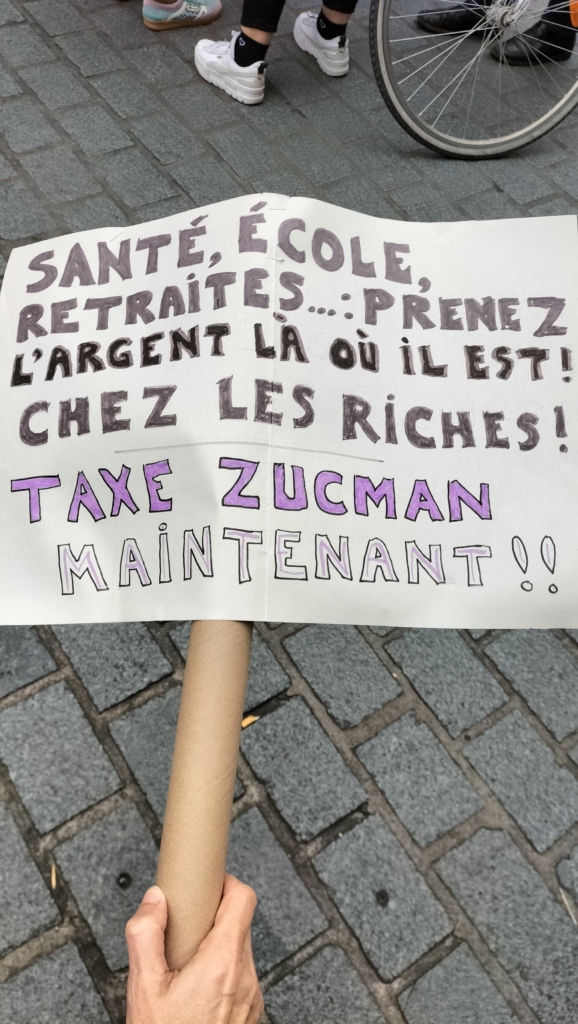 SANTÉ, ÉCOLE,
RETRAiTES...: PRENEZ
L'ARGENT LÀ OÙ iL EST!
CHEZ LES RiCHES!
TAXE ZUCMAN
MAiNTENANT!!